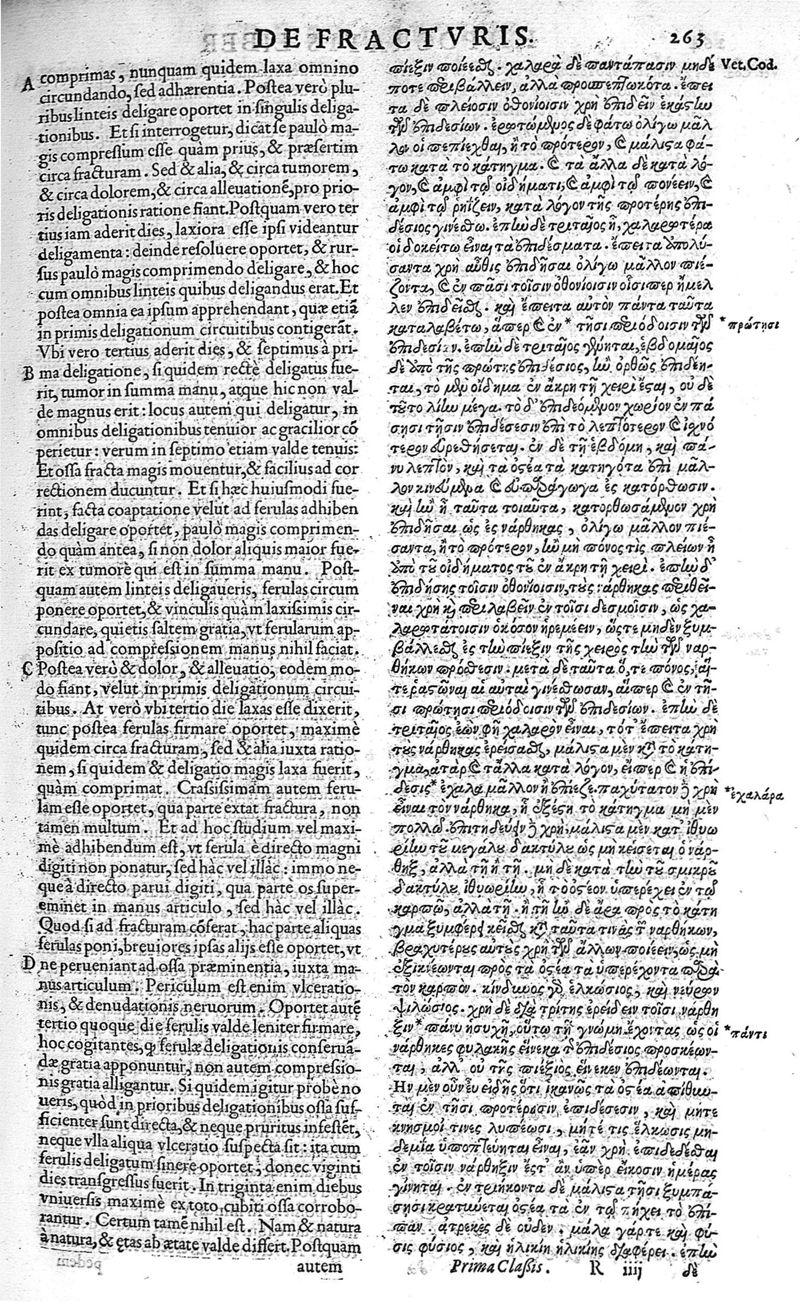 DE FRACTVRIS.
263
A
comprimas, nunquam quidem laxa omnino
circundando, sed adhærentia. Postea verò plu-
ribus linteis deligare oportet in singulis deliga-
tionibus. Et si interrogetur, dicat se paulò ma-
gis compressum esse quàm prius, & præsertim
circa fracturam. Sed & alia, & circa tumorem,
& circa dolorem, & circa alleuationẽ, pro prio-
ris deligationis ratione fiant. Postquam vero ter
tius iam aderit dies, laxiora esse ipsi videantur
deligamenta: deinde resoluere oportet, & rur-
sus paulò magis comprimendo deligare, & hoc
cum omnibus linteis quibus deligandus erat. Et
postea omnia ea ipsum apprehendant, quæ etiã
in primis deligationum circuitibus contigerãt.
Vbi vero tertius aderit dies, & septimus à pri-
B
ma deligatione, si quidem rectè deligatus fue-
rit, tumor in summa manu, atque hic non val-
de magnus erit: locus autem qui deligatur, in
omnibus deligationibus tenuior ac gracilior cõ
perietur: verum in septimo etiam valde tenuis:
Et ossa fracta magis mouentur, & facilius ad cor
rectionem ducuntur. Et si hæc huiusmodi fue-
rint, facta coaptatione velut ad ferulas adhiben
das deligare oportet, paulò magis comprimen-
do quàm antea, si non dolor aliquis maior fue-
rit ex tumore qui est in summa manu. Post-
quam autem linteis deligaueris, ferulas circum
ponere oportet, & vinculis quàm laxissimis cir-
cundare, quietis saltem gratia, vt ferularum ap-
positio ad compressionem manus nihil faciat.
C
Postea verò & dolor, & alleuatio, eodem mo-
do fiant, velut in primis deligationum circui-
tibus. At verò vbi tertio die laxas esse dixerit,
tunc postea ferulas firmare oportet, maximè
quidem circa fracturam, sed & alia iuxta ratio-
nem, si quidem & deligatio magis laxa fuerit,
quàm comprimat. Crassissimam autem feru-
lam esse oportet, qua parte extat fractura, non
tamen multum. Et ad hoc studium vel maxi-
mè adhibendum est, vt ferula è directo magni
digiti non ponatur, sed hàc vel illàc: immo ne-
que à directo parui digiti, qua parte os super-
eminet in manus articulo, sed hàc vel illàc.
Quod si ad fracturam cõferat, hac parte aliquas
ferulas poni, breuiores ipsas alijs esse oportet, vt
D
ne perueniant ad ossa præminentia, iuxta ma-
nus articulum. Periculum est enim vlceratio-
nis, & denudationis neruorum. Oportet autẽ
tertio quoque die ferulis valde leniter firmare,
hoc cogitantes, ꝙ ferulæ deligationis conseruã-
dæ gratia apponuntur, non autem compressio-
nis gratia alligantur. Si quidem igitur probè no
ueris, quòd in prioribus deligationibus ossa suf-
ficienter sunt directa, & neque pruritus infestẽt,
neque vlla aliqua vlceratio suspecta sit: ita cum
ferulis deligatum sinere oportet, donec viginti
dies transgressus fuerit. In triginta enim diebus
vniuersis maximè ex toto, cubiti ossa corrobo-
rantur. Certum tamẽ nihil est. Nam & natura
à natura, & ętas ab ætate valde differt. Postquam
autem
πίεξιν ποιέεσθαι. χαλαρὰ δὲ παντάπασιν μηδέ
ποτε περιβάλλειν, ἀλλὰ προσπεπτωκότα. ἔπει
τα δὲ πλείοσιν ὀθονίοισιν χρὴ ἐπιδεῖν ἑκάστην
τῶν ἐπιδεσίων. ἐρωτώμενος δὲ φάτω ὀλίγῳ μᾶλ
λον οἱ πεπιέχθαι, ἢ τὸ πρότερον, καὶ μάλιστα φά-
τω κατὰ τὸ κάτηγμα. καὶ τὰ ἄλλα δὲ κατὰ λό-
γον, καὶ ἀμφὶ τῷ οἰδήματι, καὶ ἀμφὶ τῷ πονέειν, καὶ
ἀμφὶ τῷ ῥηΐζειν, κατὰ λόγον τῆς προτέρης ἐπι-
δέσιος γινέσθω. ἐπὴν δὲ τριταῖος ᾖ, χαλαρώτερά
οἱ δοκείτω εἶναι τὰ ἐπιδέσματα. ἔπειτα ἀπολύ-
σαντα χρὴ αὖθις ἐπιδῆσαι ὀλίγῳ μᾶλλον πιέ-
ζοντα, καὶ ἐν πᾶσι τοῖσιν ὀθονίοισιν οἷσιπερ ἤμελ
λεν ἐπιδεῖσθαι. καὶ ἔπειτα αὐτὸν πάντα ταῦτα
καταλαβέτω, ἅπερ καὶ ἐν* τῇσι περιόδοισιν τῶν
ἐπιδεσίων. ἐπὴν δὲ τριταῖος γένηται, ἑβδομαῖος
δὲ ἀπὸ τῆς πρώτης ἐπιδέσιος, ἢν ὀρθῶς ἐπιδέη-
ται, τὸ μὲν οἴδημα ἐν ἄκρῃ τῇ χειρὶ ἔσται, οὐδὲ
τοῦτο λίην μέγα. τὸ δ' ἐπιδεόμενον χωρίον ἐν πά
σῃσι τῇσιν ἐπιδέσεσιν ἐπὶ τὸ λεπτότερον καὶ ἰσχνό
τερον εὑρεθήσεται. ἐν δὲ τῇ ἑβδόμῃ, καὶ πά-
νυ λεπτὸν, καὶ τὰ ὀστέα τὰ κατηγότα ἐπὶ μᾶλ-
λον κινεύμενα καὶ εὐπαράγωγα ἐς κατόρθωσιν.
καὶ ἢν ᾖ ταῦτα τοιαῦτα, κατορθωσάμενον χρὴ
ἐπιδῆσαι ὡς ἐς νάρθηκας, ὀλίγῳ μᾶλλον πιέ-
σαντα, ἢ τὸ πρότερον, ἢν μὴ πόνος τις πλείων ᾖ
ἀπὸ τοῦ οἰδήματος τοῦ ἐν ἄκρῃ τῇ χειρί. ἐπὴν δ'
ἐπιδήσῃς τοῖσιν ὀθονίοισιν, τοὺς νάρθηκας περιθεῖ-
ναι χρὴ καὶ περιλαβεῖν ἐν τοῖσι δεσμοῖσιν, ὡς χα-
λαρωτάτοισιν ὁκόσον ἠρεμέειν, ὥστε μηδὲν ξυμ-
βάλλεσθαι ἐς τὴν πίεξιν τῆς χειρὸς τὴν τῶν ναρ-
θήκων πρόσθεσιν. μετὰ δὲ ταῦτα ὅ, τε πόνος, αἵ
τε ῥᾳστῶναι αἱ αὐταὶ γινέσθωσαν, αἵπερ καὶ ἐν τῇ-
σι πρώτῃσι περιόδοισιν τῶν ἐπιδεσίων. ἐπὴν δὲ
τριταῖος ἐὼν φῇ χαλαρὸν εἶναι, τότ' ἔπειτα χρὴ
τοὺς νάρθηκας ἐρείσασθαι, μάλιστα μὲν κατὰ τὸ κάτη-
γμα, ἀτὰρ καὶ τἄλλα κατὰ λόγον, εἴπερ καὶ ἡ ἐπί-
δεσις* ἐχάλα μᾶλλον ἢ ἐπίεζε. παχύτατον δὲ χρὴ
εἶναι τὸν νάρθηκα, ᾗ ἐξέστη τὸ κάτηγμα μὴ μὲν
πολλῷ. ἐπιτηδεύειν δὲ χρὴ, μάλιστα μὲν κατ' ἰθυω
ρίην τοῦ μεγάλου δακτύλου ὡς μὴ κείσεται ὁ νάρ-
θηξ, ἀλλὰ τῇ ἢ τῇ. μηδὲ κατὰ τὴν τοῦ σμικροῦ
δακτύλου ἰθυωρίην, ᾗ τὸ ὀστέον ὑπερέχει ἐν τῷ
καρπῷ, ἀλλὰ τῇ ἢ τῇ. ἢν δὲ ἄρα πρὸς τὸ κάτη
γμα ξυμφέρῃ κεῖσθαι κατὰ ταῦτά τινας τῶν ναρθήκων,
βραχυτέρους αὐτοὺς χρὴ τῶν ἄλλων ποιέειν, ὡς μὴ
ἐξικνέωνται πρὸς τὰ ὀστέα τὰ ὑπερέχοντα παρὰ
τὸν καρπόν. κίνδυνος γὰρ ἑλκώσιος, καὶ νεύρων
ψιλώσιος. χρὴ δὲ διὰ τρίτης ἐρείδειν τοῖσι νάρθη
ξιν* πάνυ ἡσυχῇ, οὕτω τῇ γνώμῃ ἔχοντας ὡς οἱ
νάρθηκες φυλακῆς εἵνεκα τῆς ἐπιδέσιος προσκέων-
ται, ἀλλ' οὐ τῆς πιέξιος εἵνεκεν ἐπιδέωνται.
Ἢν μὲν οὖν εὖ εἰδῇς ὅτι ἱκανῶς τὰ ὀστέα ἀπίθυν-
ται ἐν τῇσι προτέρῃσιν ἐπιδέσεσιν, καὶ μήτε
κνησμοί τινες λυπέωσι, μήτε τις ἕλκωσις μη-
δεμία ὑποπτεύηται εἶναι, ἐᾶν χρὴ ἐπιδεδέσθαι
ἐν τοῖσιν νάρθηξιν ἔστ' ἂν ὑπὲρ εἴκοσιν ἡμέρας
γίνηται. ἐν τριήκοντα δὲ μάλιστα τῇσι ξυμπά-
σῃσι κρατύνεται ὀστέα τὰ ἐν τῷ πήχει τὸ ἐπί-
παν. ἀτρεκὲς δὲ οὐδέν. μάλα γάρ τε καὶ φύ-
σις φύσιος, καὶ ἡλικίη ἡλικίης διαφέρει. ἐπὴν
δὲ
Vet. Cod.
*πρώτησι
*ἐχαλάρα
*πάντι
Prima Classis. R iiij